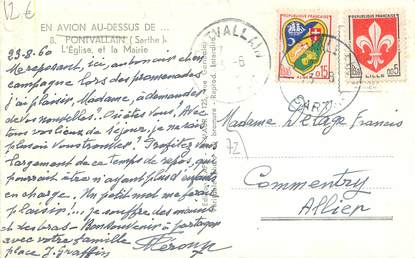 12€
EN AVION AU-DESSUS DE ...
8. FONTVALLAIN (Sarthe)
L'Église, et la Mairie
23-8-60
Me reposant, ici, au bon air
campagne lors des promenades
j'ai plaisir, Madame, à demander
de vos nouvelles! Où êtes vous! Avec
tous vos lieux de séjour, je ne sais
plus où vous trouver! Profitez vous
largement de ce temps de repos, que
peut être n'ayant plus d'enfants
en charge. Un petit mot me ferait
plaisir... je souffre des mains
et des bras - Bon Souvenir à partager
avec votre famille
place J. Graffin
RÉPUBLIQUE FRANÇAISE
0,15
RÉPUBLIQUE FRANÇAISE
0,05
LILLE
Madame Delage Francis
72
Commentry
Allier